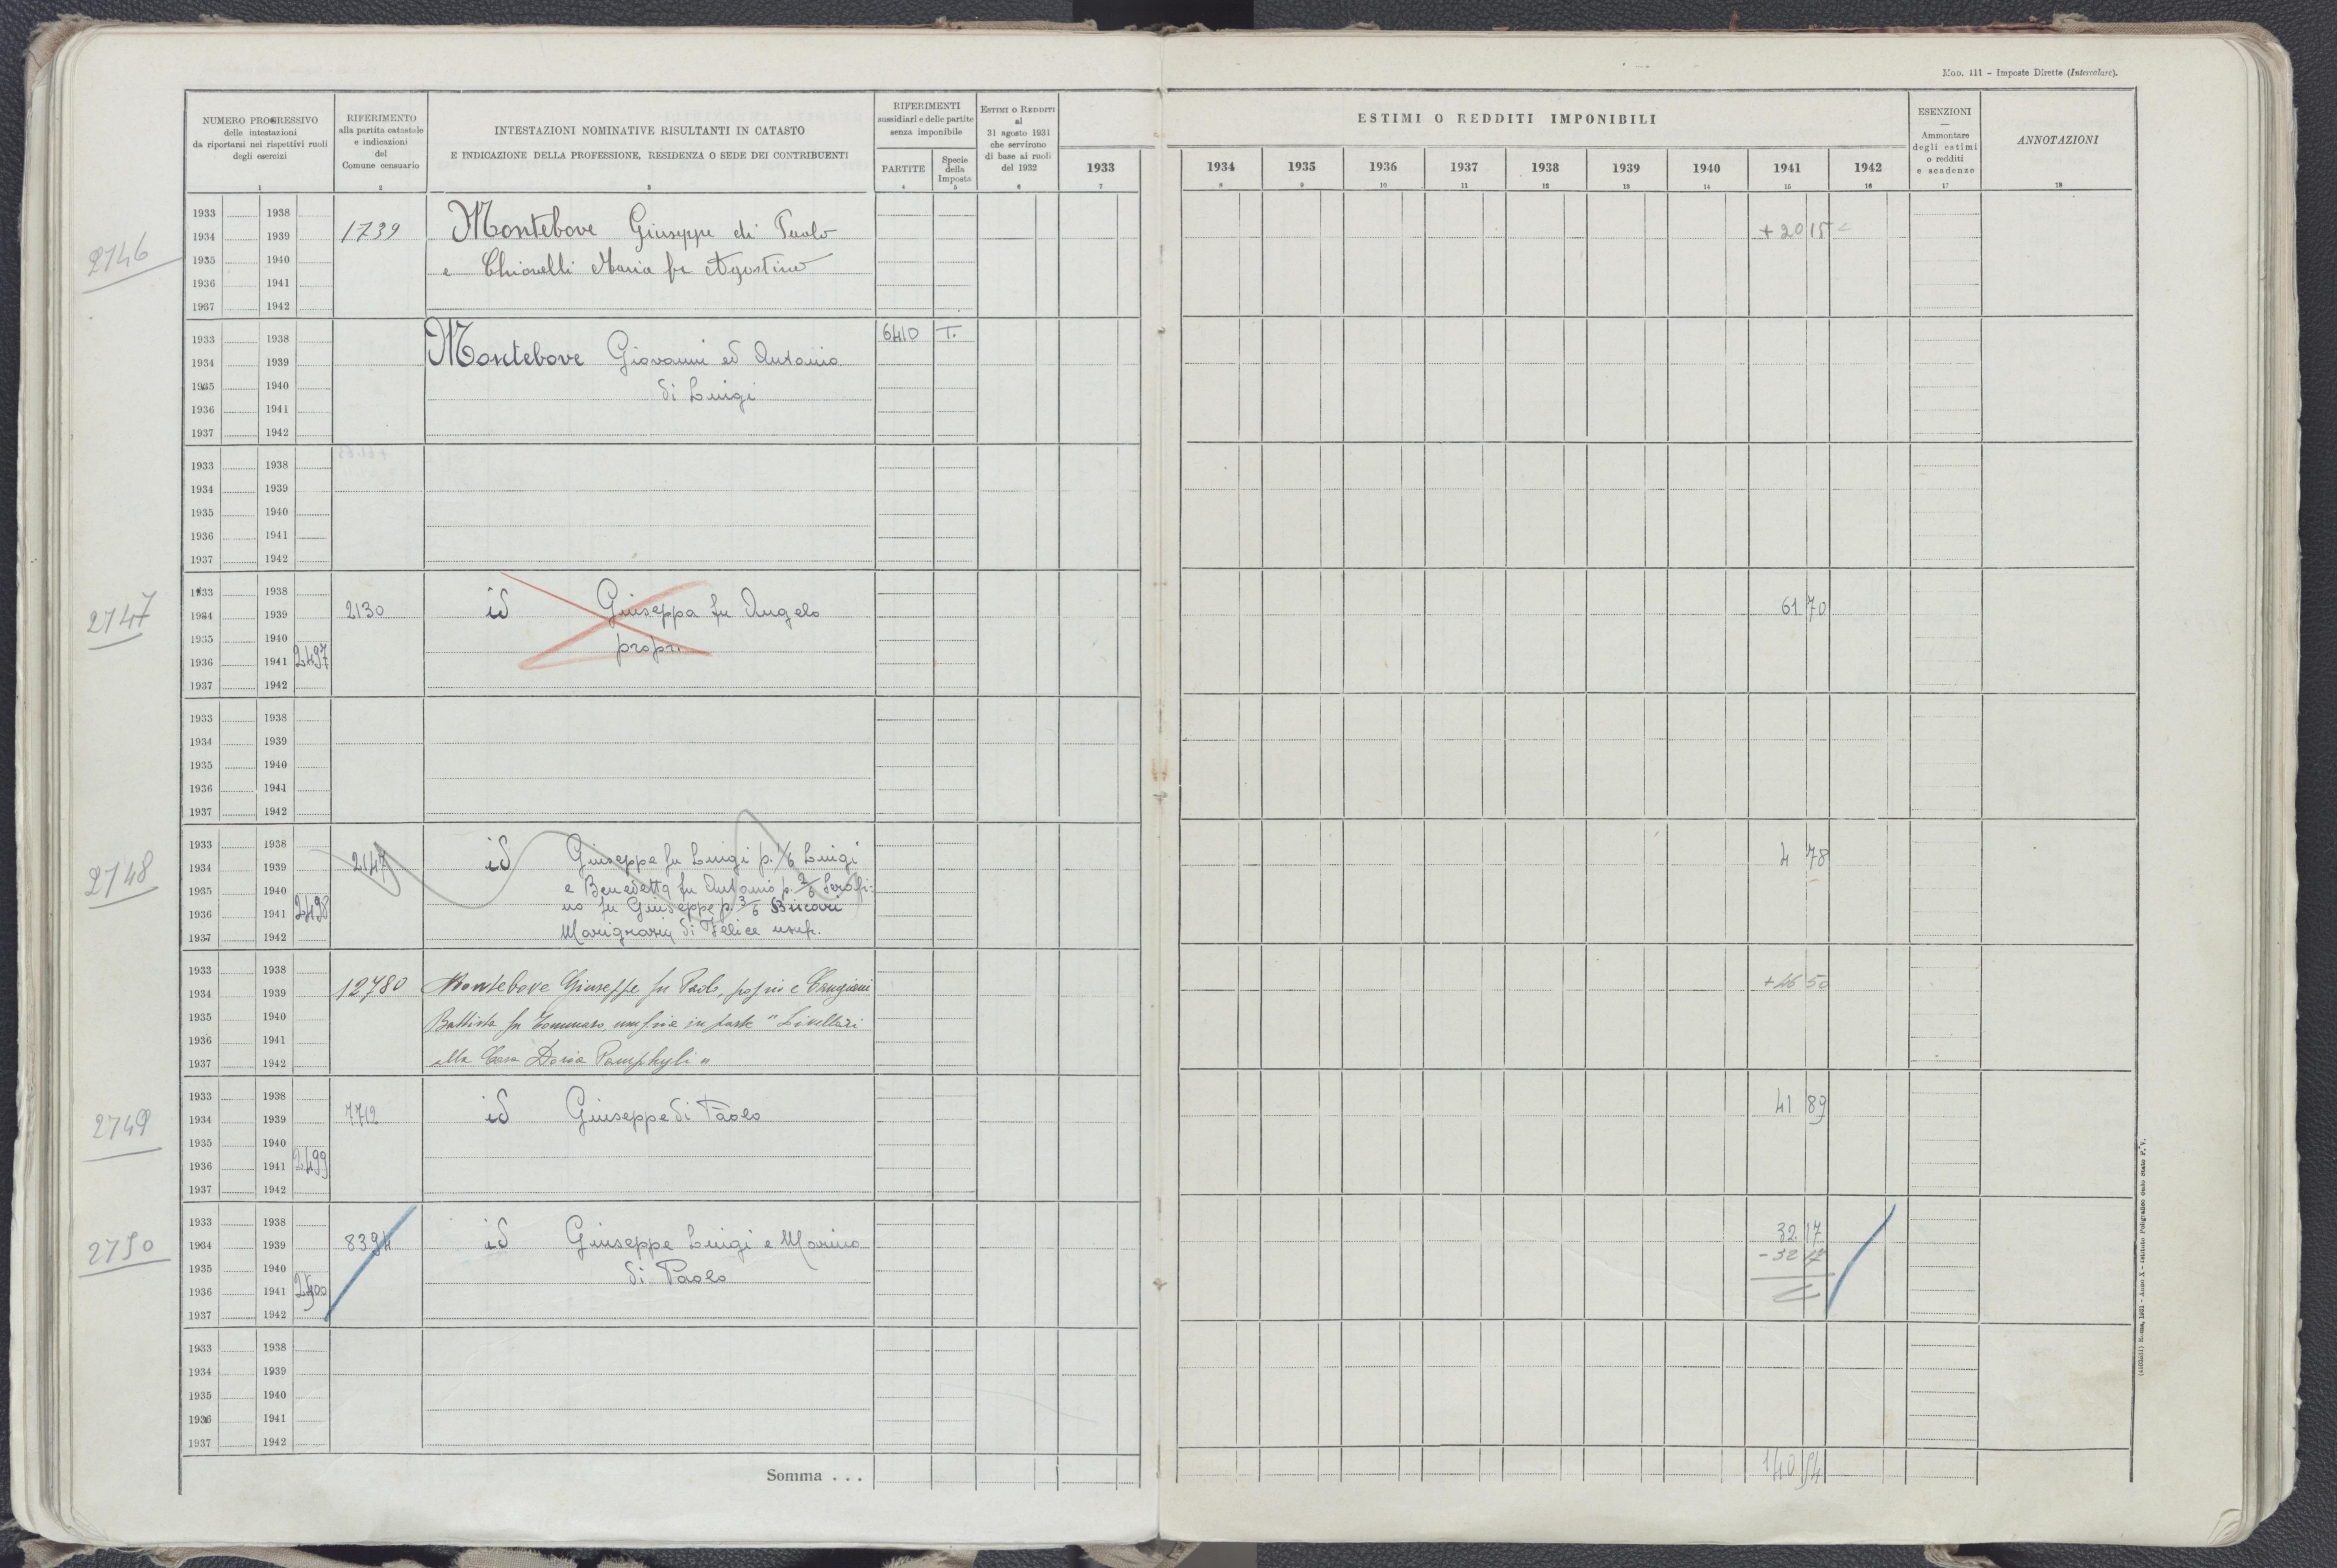 Mod. 111 - Imposte Dirette (Intercalare).
NUMERO PROGRESSIVO
delle intestazioni
da riportarsi nei rispettivi ruoli
degli esercizi
1
RIFERIMENTO
alla partita catastale
e indicazioni
del
Comune censuario
2
INTESTAZIONI NOMINATIVE RISULTANTI IN CATASTO
E INDICAZIONE DELLA PROFESSIONE, RESIDENZA O SEDE DEI CONTRIBUENTI
3
RIFERIMENTI
sussidiari e delle partite
senza imponibile
PARTITE
4
Specie
della
Imposta
5
ESTIMI O REDDITI
al
31 agosto 1931
che servirono
di base ai ruoli
del 1932
6
ESTIMI O REDDITI IMPONIBILI
1933 1934 1935 1936 1937 1938 1939 1940 1941 1942
7 8 9 10 11 12 13 14 15 16
ESENZIONI
Ammontare
degli estimi
o redditi
e scadenze
17
ANNOTAZIONI
18
2746
1933 1938
1934 1939 1739 Montebove Giuseppe di Paolo + 20 15
1935 1940 e Chiovelli Maria fu Agostino
1936 1941
1937 1942
1933 1938 6410 T.
1934 1939 Montebove Giovanni ed Antonio
1935 1940 di Luigi
1936 1941
1937 1942
1933 1938
1934 1939
1935 1940
1936 1941
1937 1942
2747
1933 1938
1934 1939 2130 id Giuseppa fu Angelo 61 70
1935 1940 propr.
1936 1941 2497
1937 1942
1933 1938
1934 1939
1935 1940
1936 1941
1937 1942
2748
1933 1938
1934 1939 2147 id Giuseppe fu Luigi p. 1/6 Luigi 4 78
1935 1940 e Benedetta fu Antonio p. 2/6 Serafi=
1936 1941 2498 no fu Giuseppe p. 3/6
1937 1942 di Felice usufr.
1933 1938
1934 1939 12780 Montebove Giuseppe fu Paolo, propri e Cangiani + 46 50
1935 1940 Battista fu Tommaso, in parte "Livellari
1936 1941
1937 1942 alla Casa Doria Pamphyli"
2749
1933 1938
1934 1939 7712 id Giuseppe di Paolo 41 89
1935 1940
1936 1941 2499
1937 1942
2750
1933 1938
1934 1939 8394 id Giuseppe Luigi e Marino 32 17
1935 1940 di Paolo - 32 17
1936 1941 2500
1937 1942
1933 1938
1934 1939
1935 1940
1936 1941
1937 1942
Somma . . . 140 54